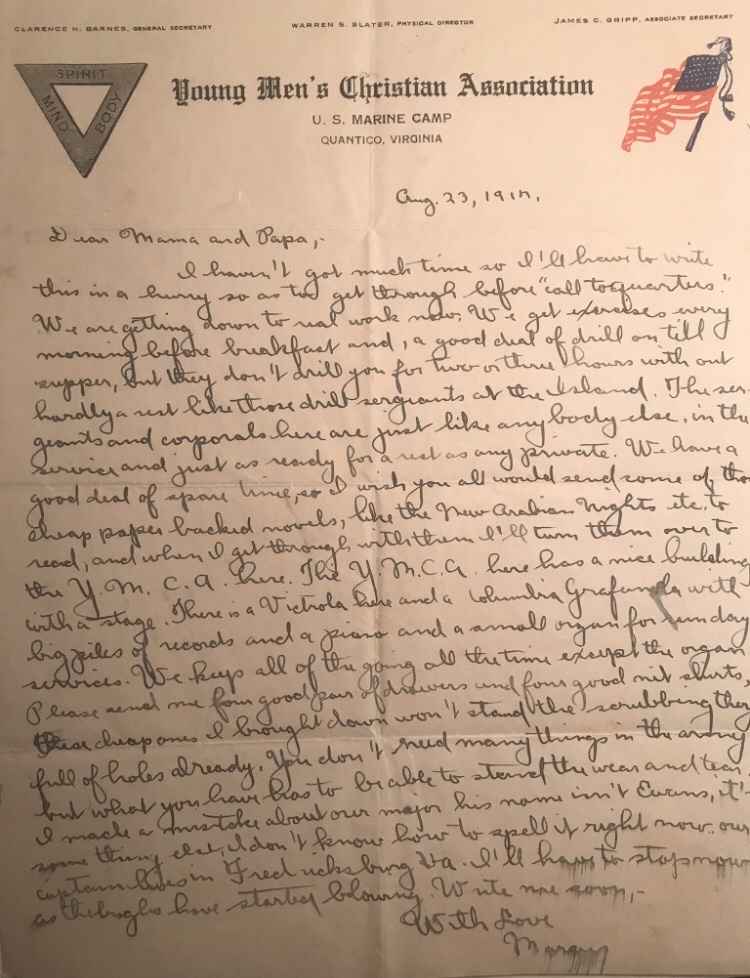 CLARENCE H. BARNES, GENERAL SECRETARY
WARREN S. SLATER, PHYSICAL DIRECTOR
JAMES C. GRIPP, ASSOCIATE SECRETARY
SPIRIT
MIND
BODY
Young Men's Christian Association
U. S. MARINE CAMP
QUANTICO, VIRGINIA
Aug. 23, 1917.
Dear Mama and Papa,-
I haven't got much time so I'll have to write
this in a hurry so as to get through before "call to quarters."
We are getting down to real work now. We get exercises every
morning before breakfast and, a good deal of drill on till
supper, but they don't drill you for two or three hours with out
hardly a rest like those drill sergeants at the Island. The ser-
geants and corporals here are just like any body else, in the
service and just as ready for a rest as any private. We have a
good deal of spare time, so I wish you all would send some of tho
cheap paper backed novels, like the New Arabian Nights etc. to
read, and when I get through with them I'll turn them over to
the Y. M. C. A. here. The Y. M. C. A. here has a nice building
with a stage. There is a Victrola here and a Columbia Grafanola with
big piles of records and a piano and a small organ for sunday
services. We keep all of the going all the time except the organ
Please send me four good pair of drawers and four good nit shirts,
these cheap ones I brought down won't stand the scrubbing they
full of holes already. You don't need many things in the army
but what you have has to be able to stand the wear and tear.
I made a mistake about our major his name isn't Evans, it'
some thing else, I don't know how to spell it right now. our
captain lives in Fredricksburg Va. I'll have to stop now
as the bugles have started blowing. Write me soon,-
With Love